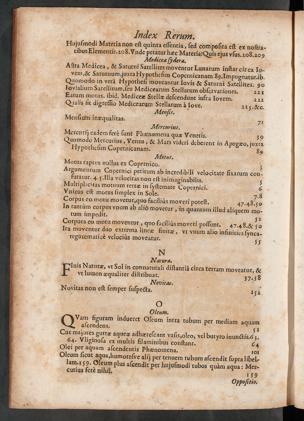 Index Rerum.
Hujusmodi Materia non est quinta essentia, sed composita est ex nostra-
tibus Elementis. 108. Unde petatur hæc Materia? Quis ejus usus. 208. 209
Medicea sydera.
Astra Medicea, & Saturni Satellites moventur Lunarum instar circa Io-
vem, & Saturnum, juxta Hypothesim Copernicanam 89. Impugnatur. ib.
Quomodo in verâ Hypothesi moveantur Iovis & Saturni Satellites. 90
Iovialium Satellitum, seu Mediceorum Stellarum observationes. 221
Earum motus. ibid. Mediceæ Stellæ descendunt infra Iovem. 222
Qualis sit digressio Medicearum Stellarum à Iove. 215. &c.
Mensis.
Mensium inæqualitas. 71
Mercurius.
Mercurij eædem ferè sunt Phænomena quæ Veneris. 59
Quomodo Mercurius, Venus, & Mars videri deberent in Apogæo, juxta
Hypothesim Copernicanam. 89
Motus.
Motus raptus nullus ex Copernico. 4
Argumentum Copernici petitum ab incredibili velocitate fixarum con-
futatur. 4. 5. Illa velocitas non est inimaginabilis. 5
Multiplicitas motuum terræ in systemate Copernici. 6
Visicus est motus simplex in Sole. 7. 8
Corpus eo motu movetur, quo facilius moveri potest. 47. 48. 50
In tantùm corpus unum ab alio movetur, in quantum illud aliquem mo-
tum impedit. 52
Corpora eo motu moventur, quo facilius moveri possunt. 47. 48. & 50
Ita moventur duo extrema lineæ finitæ, ut unum alio infinities synca-
tegorematicè velociùs moveatur. 55
N
Natura.
Finis Naturæ, ut Sol in connaturali distantiâ circa terram moveatur, &
ut lumen æqualiter distribuat. 37. 38
Novitas.
Novitas non est semper suspecta. 252
O
Oleum.
Quam figuram induceret Oleum intra tubum per mediam aquam
ascendens. 52
Cur majores guttæ aqueæ adhærescant vasis, oleo, vel butyro inunctis. 63.
64. Vliginosa ex multis filamentis constant. 64
Olei per aquam ascendentis Phænomena. 101
Oleum sicut aqua, humoresve alij per tenuem tubum ascendit supra libel-
lam. 159. Oleum plus ascendit per hujusmodi tubos quàm aqua: Mer-
curius ferè nihil. 159
Oppositio.